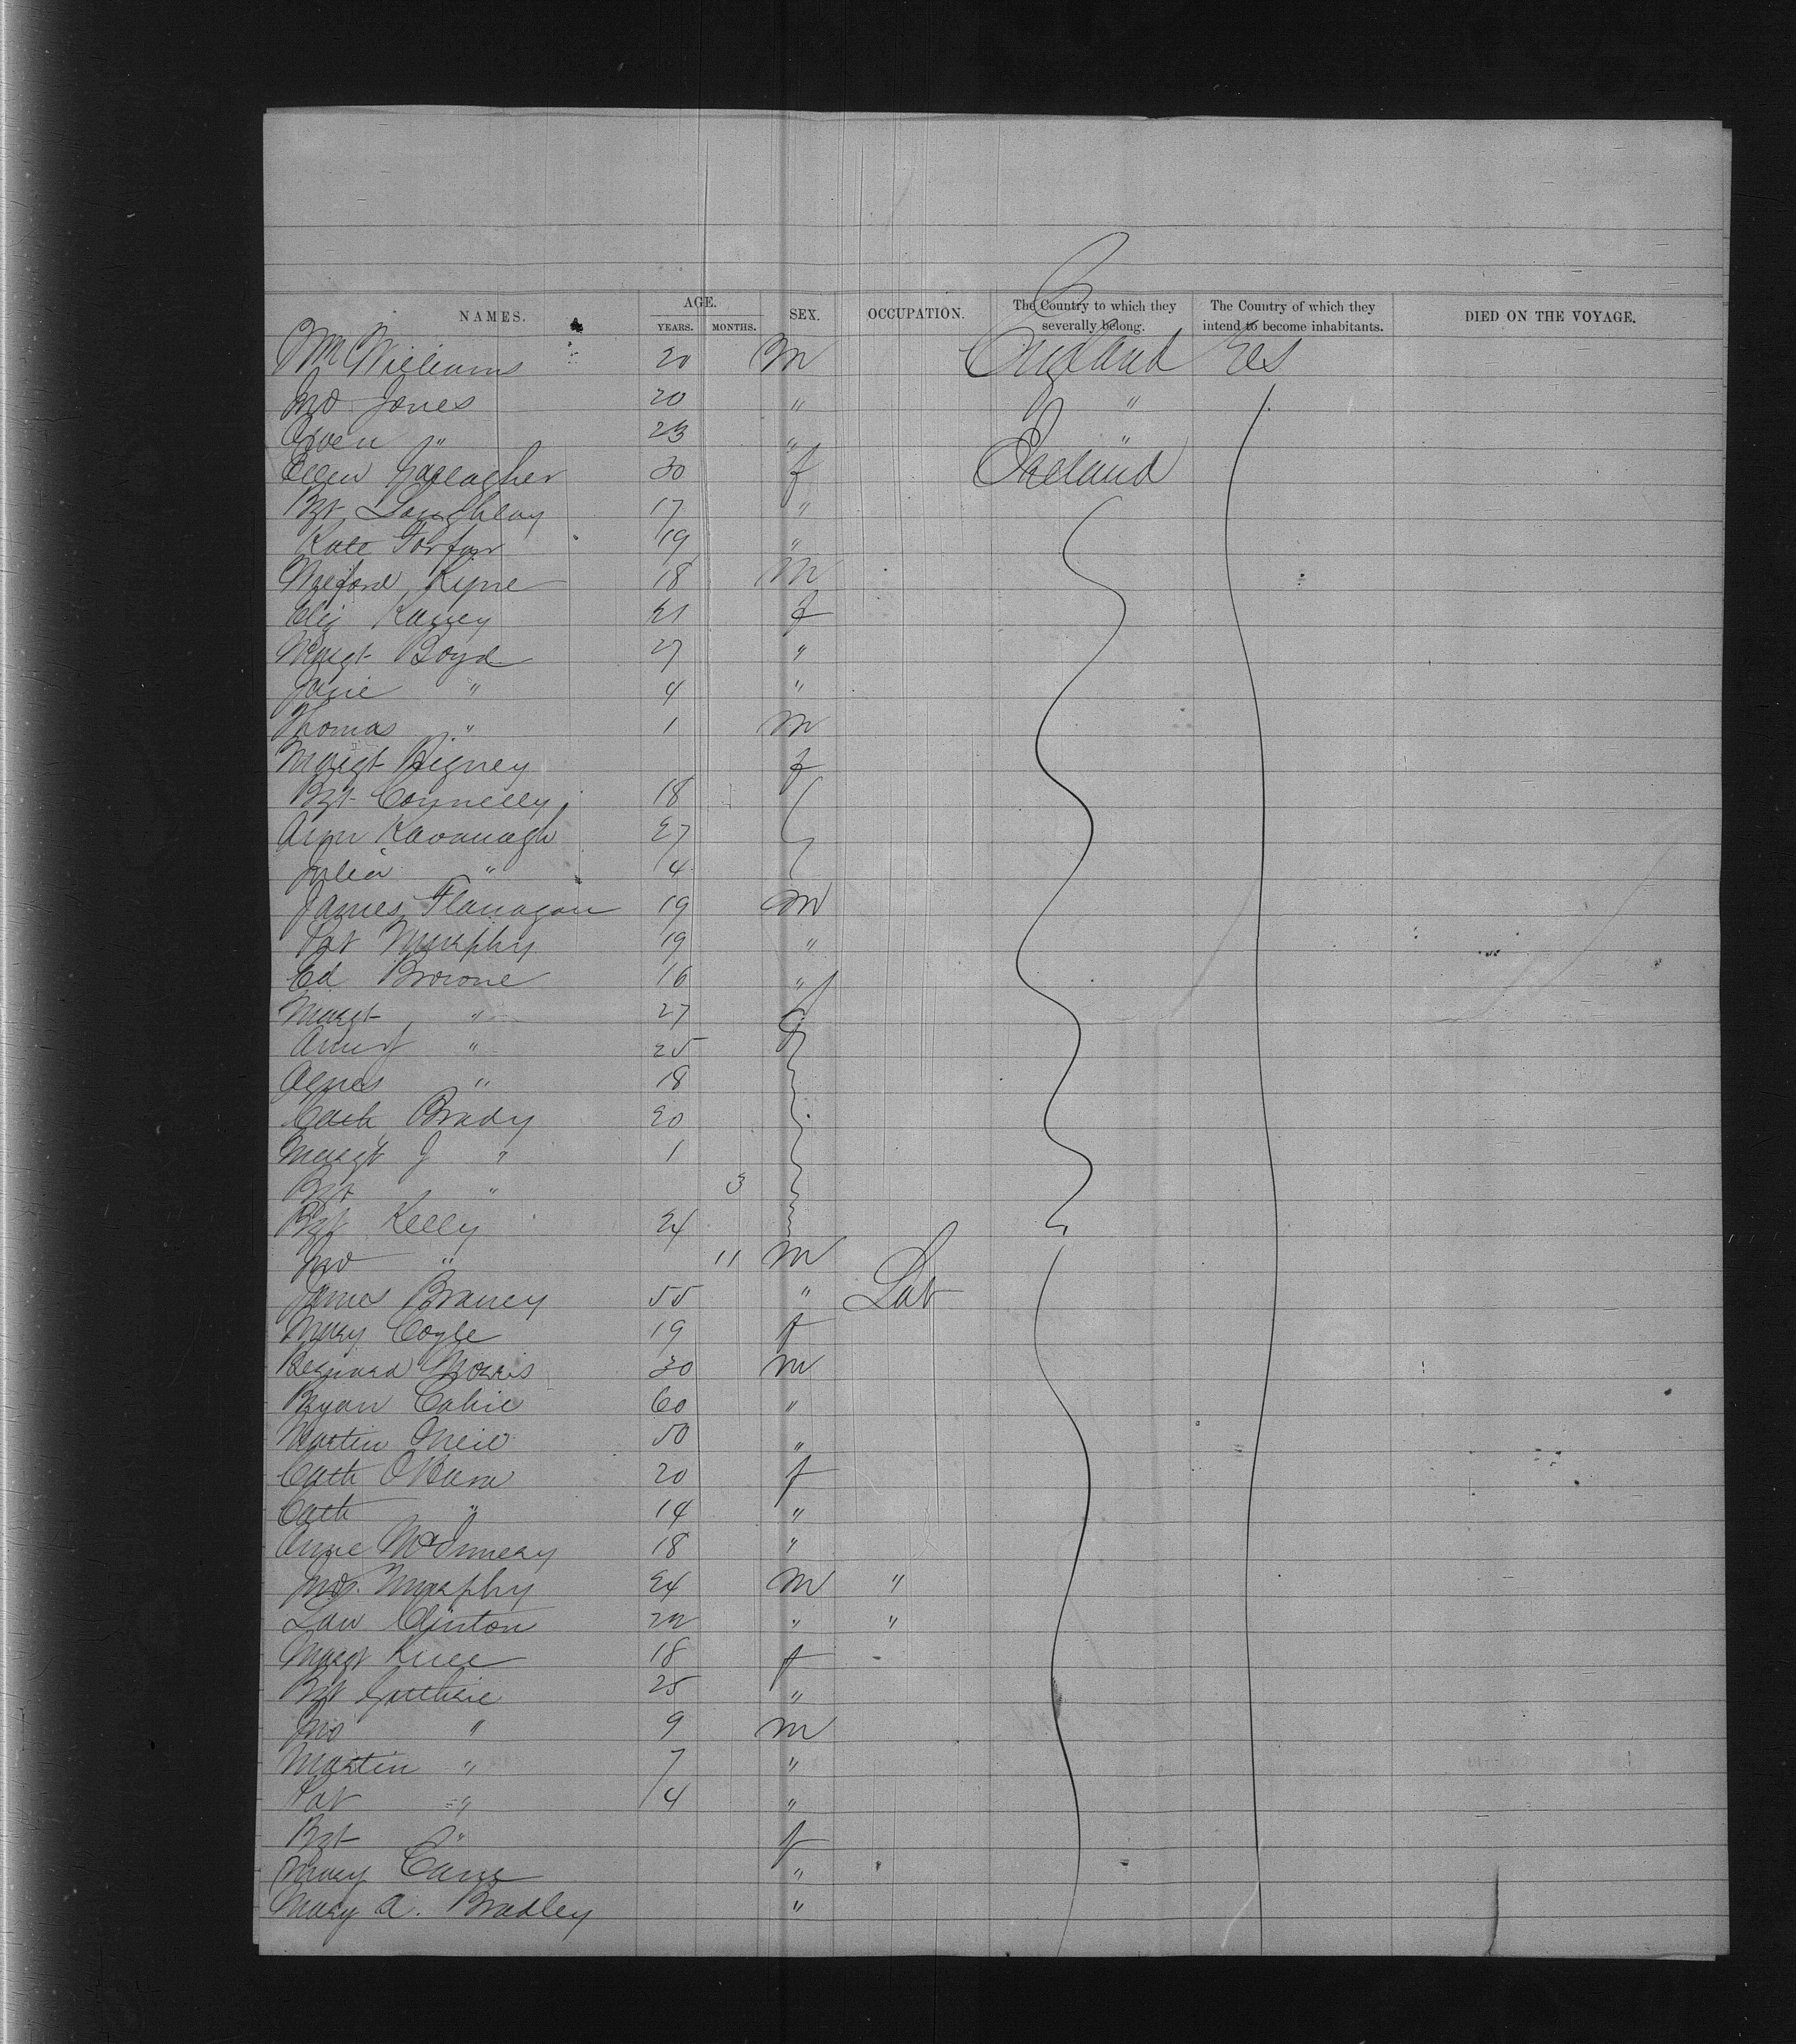 NAMES. AGE. SEX. OCCUPATION. The Country to which they severally belong. The Country of which they intend to become inhabitants. DIED ON THE VOYAGE.
YEARS. MONTHS.
Wm Williams 20 M England
Jno Jones 20 " "
Owen " 23 " "
Ellen Gallagher 30 f Ireland
Bgt 17 "
Kate 19 "
Kyne 18 M
Eliz 21 f
Margt Boyd 27 "
Jane " 4 "
Thomas " 1 M
Margt Rigney f
Bgt Connelly 18
Ann Kavanagh 27
Julia " 4
James Flanagan 19 M
Pat Murphy 19 "
Ed Browne 16 "
Margt " 27 f
" 25
Agnes " 18
Cath Brady 20
Margt J " 1
Bgt " 3
Bgt Kelly 24
Jno " 11 M
James Braney 55 " Lab
Mary Coyle 19 f
Bernard Morris 30 M
Ryan 60 "
Martin Oneil 50 "
Cath OHara 20 f
Cath " 14 "
Anne 18 "
Jno. Murphy 24 M "
Law Clinton 22 " "
Margt 18 f
Bgt Guthrie 25 "
Jno " 9 M
Martin " 7 "
Pat " 4 "
Bgt " f
Mary Cane "
Mary A. Bradley "